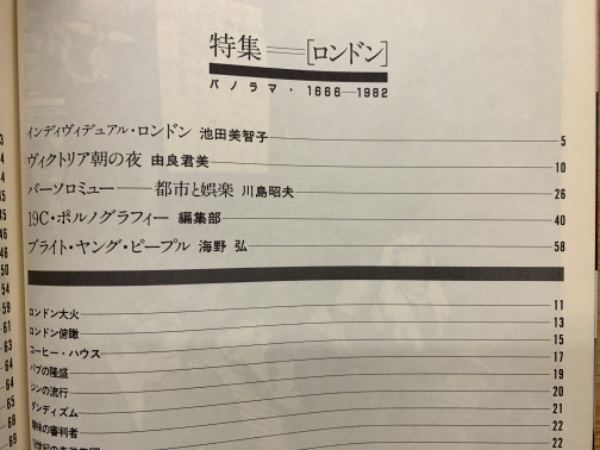 特集──[ロンドン]
パノラマ・1666─1982
インディヴィデュアル・ロンドン 池田美智子 5
ヴィクトリア朝の夜 由良君美 10
バーソロミュー──都市と娯楽 川島昭夫 26
19C・ポルノグラフィー 編集部 40
ブライト・ヤング・ピープル 海野 弘 58
ロンドン大火 11
ロンドン俯瞰 13
コーヒー・ハウス 15
パブの隆盛 17
ジンの流行 19
ダンディズム 20
趣味の審判者 21
22
22
46
46
50
54
59
61
63
64
64
65
68
69